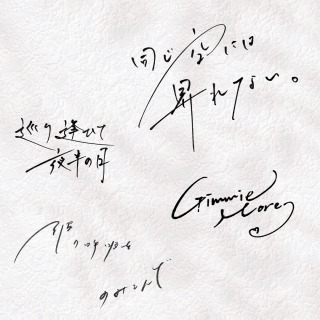 同じ空には
昇れない。
巡り逢ひて
夜半の月
Gimmie
More
のみこんで